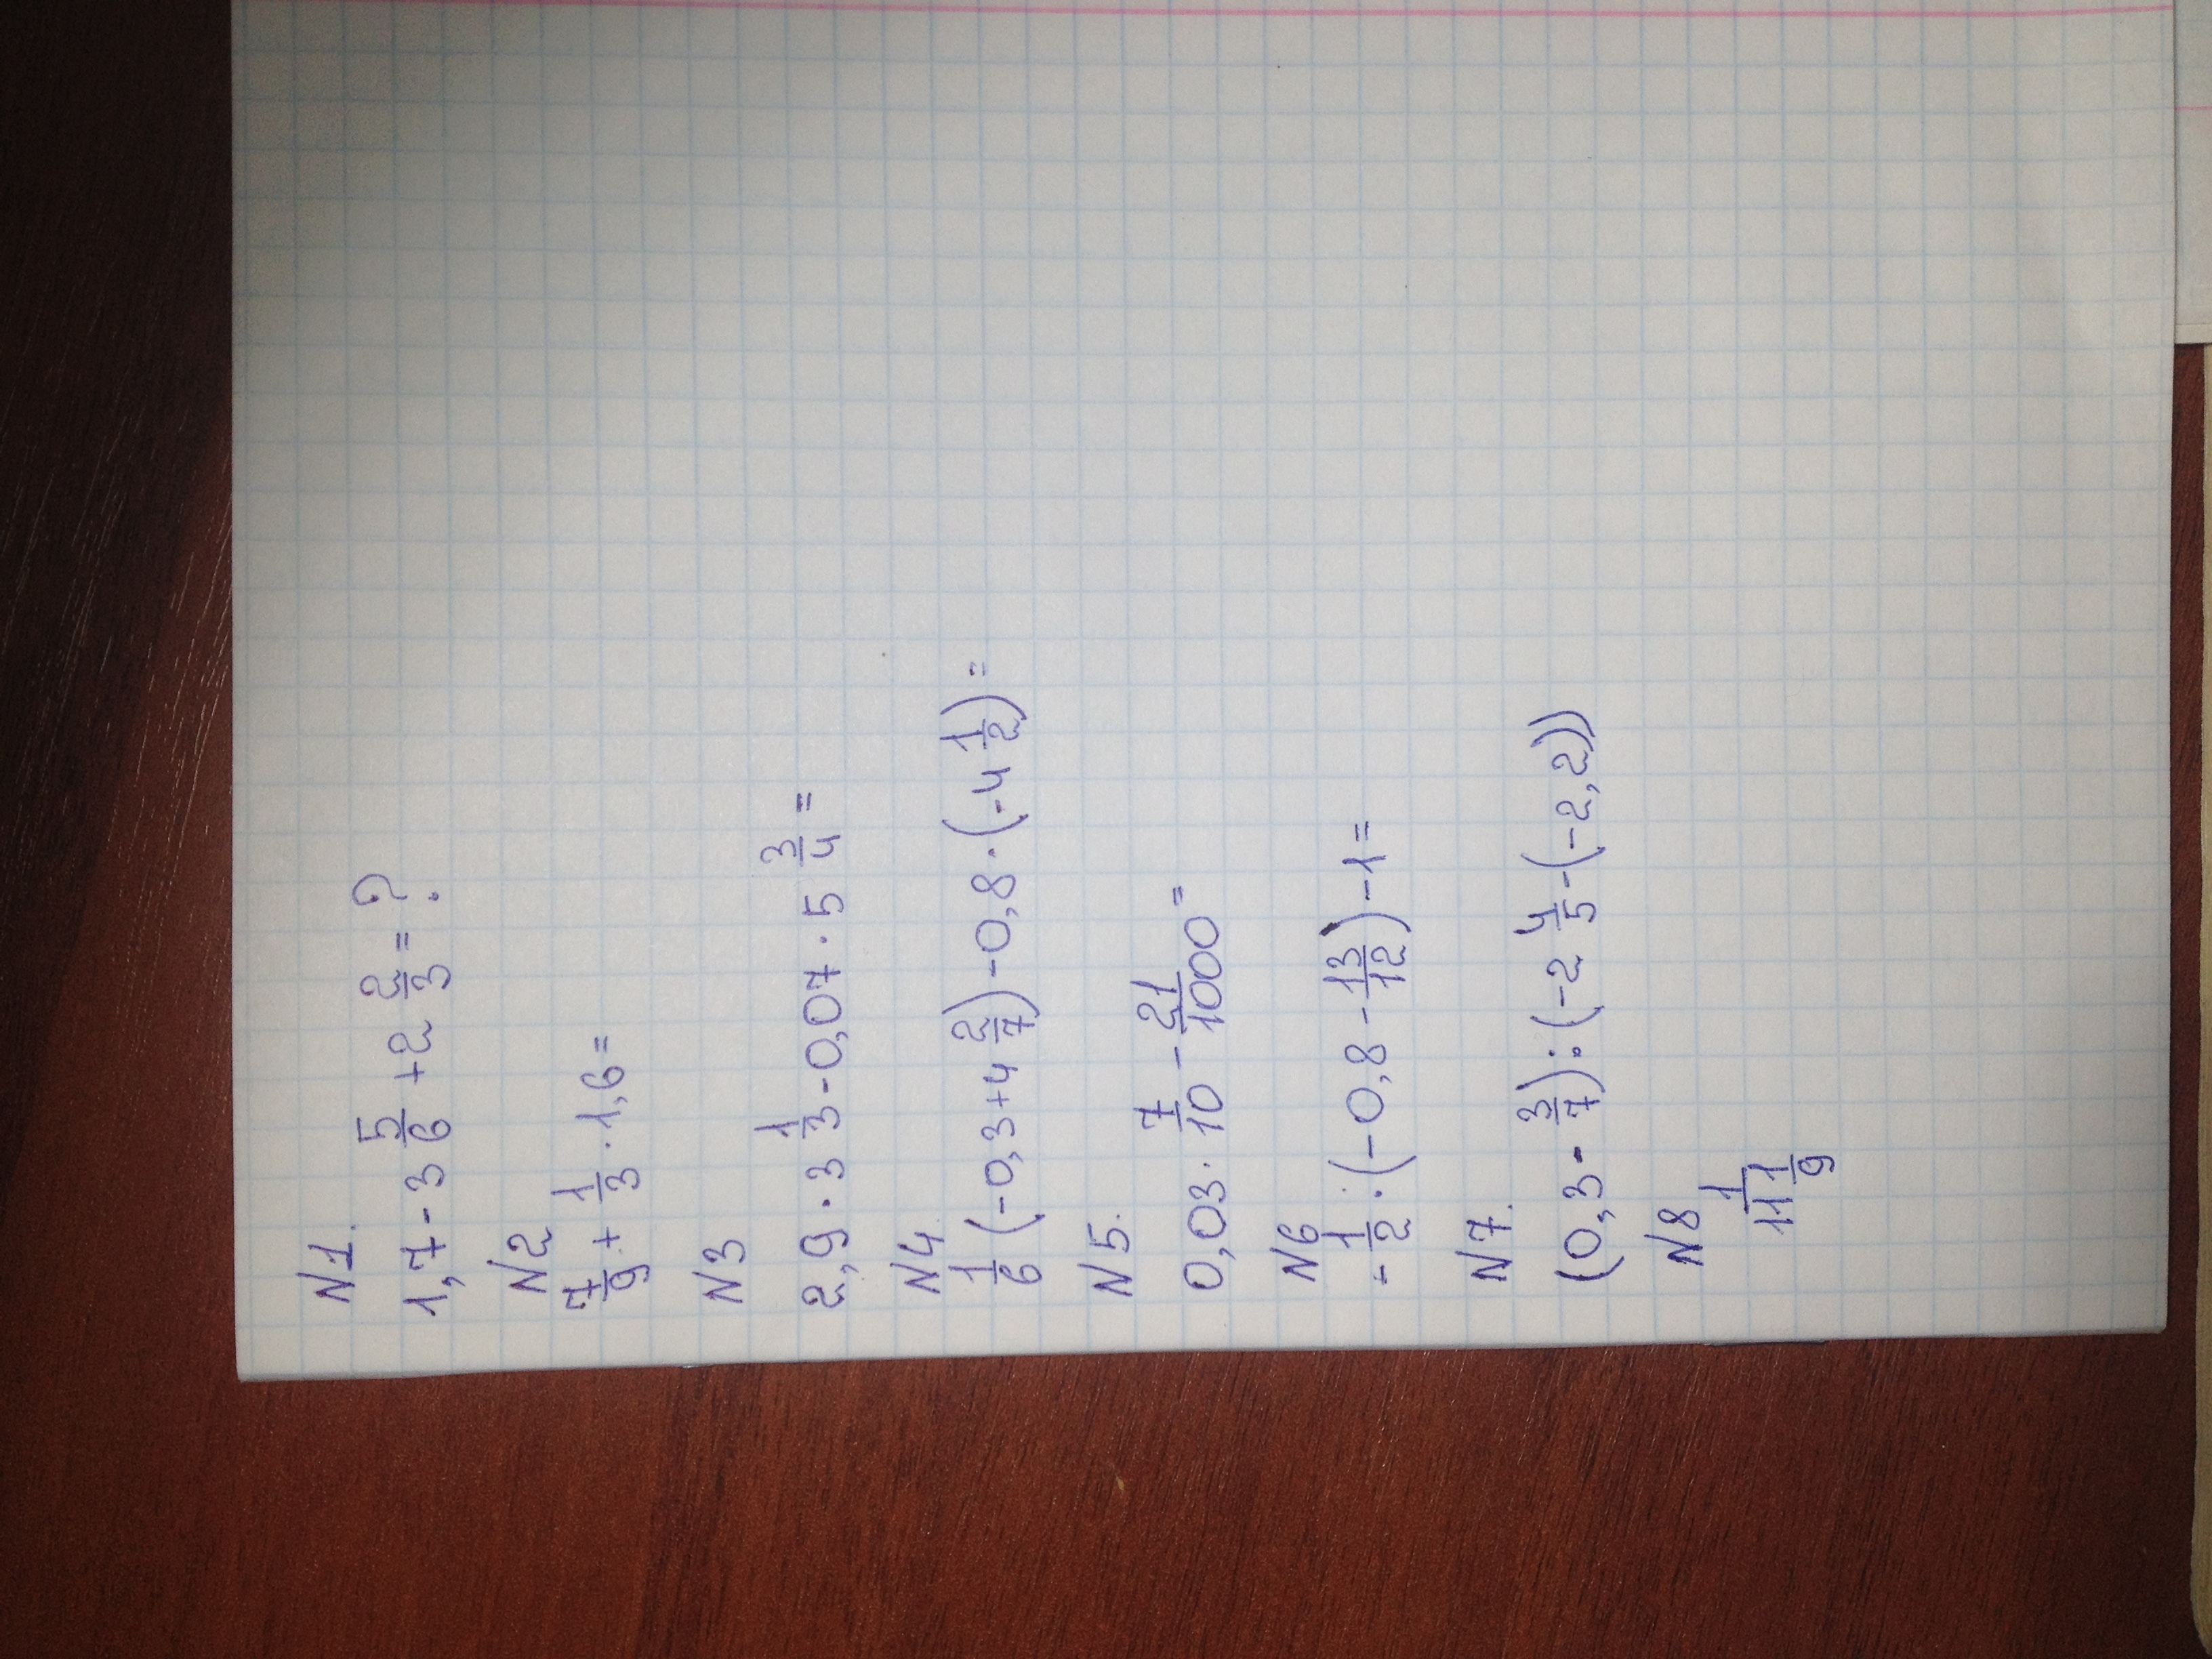 N1.
1,7 - 3 5/6 + 2 2/3 = ?
N2
7/9 + 1/3 · 1,6 =
N3
2,9 · 3 1/3 - 0,07 · 5 3/4 =
N4
1/6 (-0,3 + 4 2/7) - 0,8 · (-4 1/2) =
N5.
0,03 · 7/10 - 21/1000 =
N6
- 1/2 : (-0,8 - 13/12) - 1 =
N7.
(0,3 - 3/7) : (-2 4/5 - (-2,2))
N8
1/11 1/9